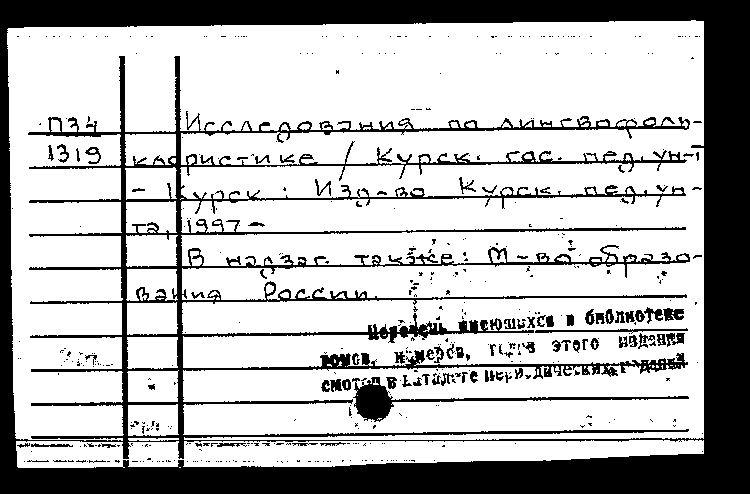 П34 Исследования по лингвофоль-
1319 клористике / Курск. гос. пед. ун-т
- Курск : Изд-во Курск. пед. ун-
та, 1997 -
В надзаг. также: М-во образо-
вания России.
Перечень имеющихся в библиотеке
томов, номеров, годов этого издания
смотри в каталоге периодических изданий